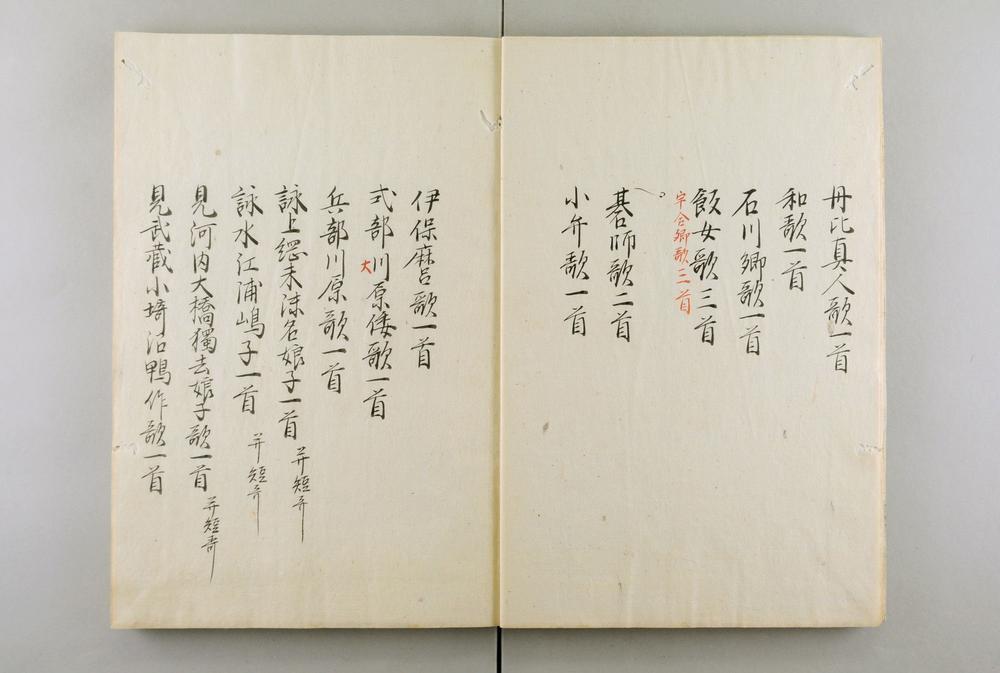 丹比真人歌一首
和歌一首
石川卿歌一首
飯女歌三首
宇合卿歌三首
碁師歌二首
小弁歌一首
伊保麻呂歌一首
式部川原倭歌一首
大
兵部川原歌一首
詠上総末洙名娘子一首
并短哥
詠水江浦嶋子一首
并短哥
見河内大橋獨去娘子歌一首
并短哥
見武蔵小埼沼鴨作歌一首